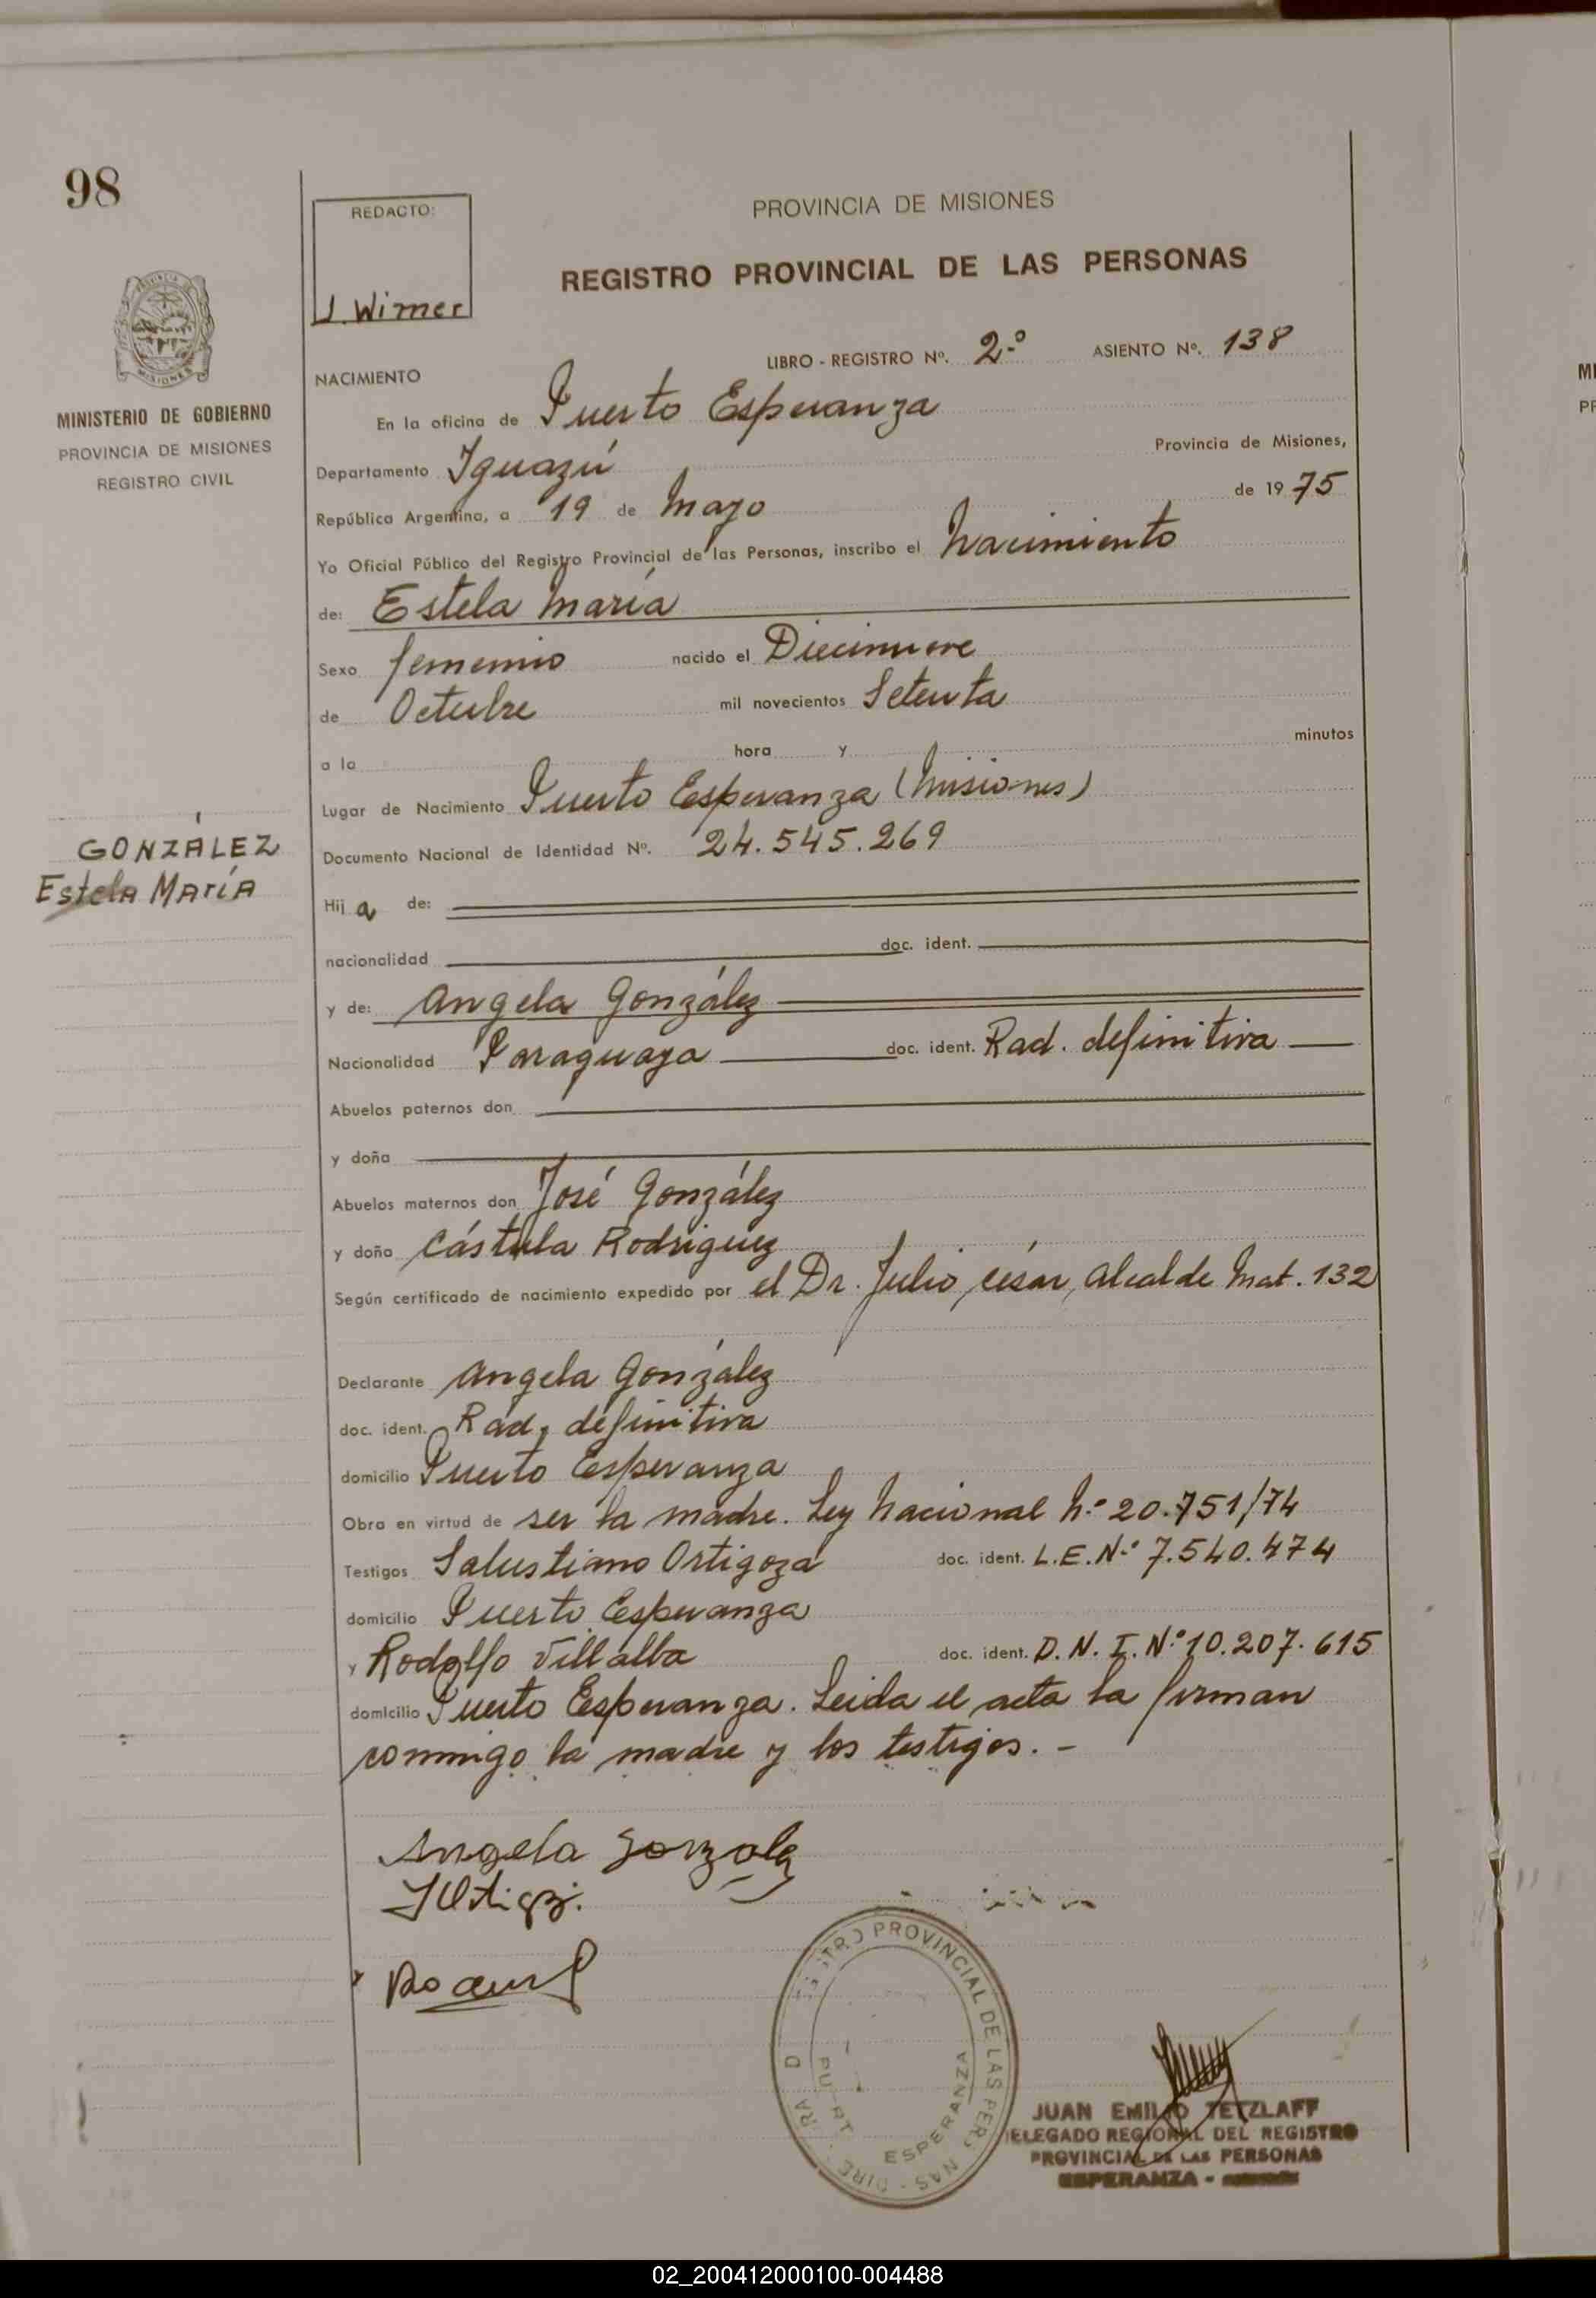 98
REDACTO:
J. Wimer
PROVINCIA DE MISIONES
REGISTRO PROVINCIAL DE LAS PERSONAS
MINISTERIO DE GOBIERNO
PROVINCIA DE MISIONES
REGISTRO CIVIL
GONZÁLEZ
Estela María
NACIMIENTO
LIBRO - REGISTRO Nº. 2-º ASIENTO Nº. 138
En la oficina de Puerto Esperanza
Departamento Iguazú Provincia de Misiones,
República Argentina, a 19 de Mayo de 1975
Yo Oficial Público del Registro Provincial de las Personas, inscribo el Nacimiento
de: Estela María
Sexo femenino nacido el Diecinueve
de Octubre mil novecientos Setenta
a la hora y minutos
Lugar de Nacimiento Puerto Esperanza (Misiones)
Documento Nacional de Identidad Nº. 24.545.269
Hija de:
nacionalidad doc. ident.
y de: Angela González
Nacionalidad Paraguaya doc. ident. Rad. definitiva
Abuelos paternos don
y doña
Abuelos maternos don José González
y doña Cástula Rodriguez
Según certificado de nacimiento expedido por el Dr. Julio, césar, Alcalde Mat. 132
Declarante Angela González
doc. ident. Rad. definitiva
domicilio Puerto Esperanza
Obra en virtud de ser la madre. Ley Nacional N.º 20.751/74
Testigos Salustiano Ortigoza doc. ident. L.E.N.º 7.540.474
domicilio Puerto Esperanza
y Rodolfo Villalba doc. ident. D.N.I.N.º 10.207.615
domicilio Puerto Esperanza. Leida el acta la firman
conmigo la madre y los testigos. -
Angela Gonzalez
REGISTRO PROVINCIAL DE LAS PERSONAS
PUERTO ESPERANZA
JUAN EMILIO TETZLAFF
DELEGADO REGIONAL DEL REGISTRO
PROVINCIAL DE LAS PERSONAS
ESPERANZA -
02_200412000100-004488